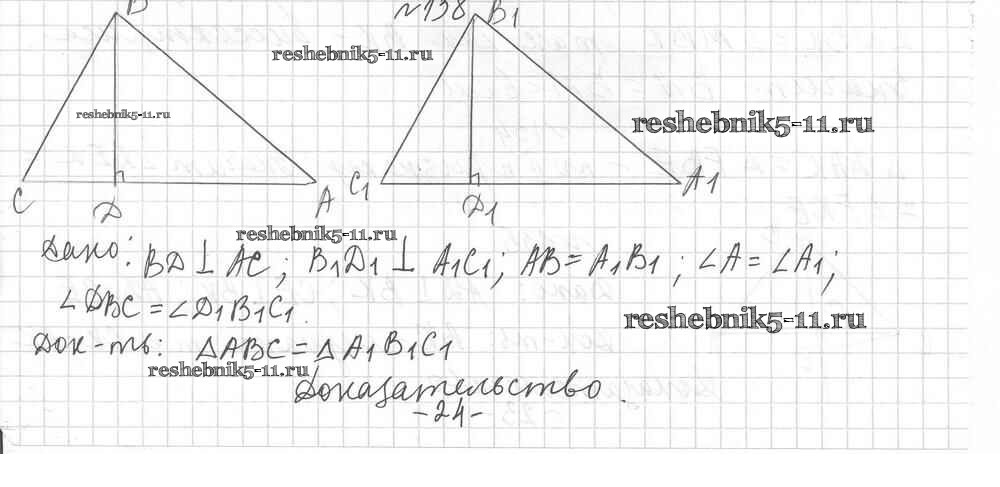 №138
B B1
reshebnik5-11.ru
reshebnik5-11.ru
reshebnik5-11.ru
C Д A C1 Д1 A1
reshebnik5-11.ru
Дано: BД ⊥ AC; B1Д1 ⊥ A1C1; AB = A1B1; ∠A = ∠A1;
∠ДBC = ∠Д1B1C1.
reshebnik5-11.ru
Док-ть: △ABC = △A1B1C1
reshebnik5-11.ru
Доказательство.
-24-